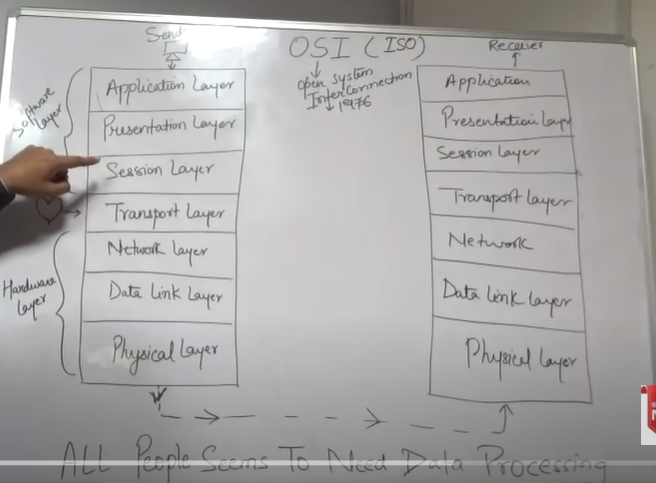 Send
OSI (ISO)
Receiver
open system
Interconnection
1976
Software
Layer
Application Layer
Presentation Layer
Session Layer
Transport Layer
Network Layer
Data Link Layer
Physical Layer
Hardware
Layer
Application
Presentation Layer
Session Layer
Transport Layer
Network
Data Link Layer
Physical Layer
ALL People Seems To Need Data Processing